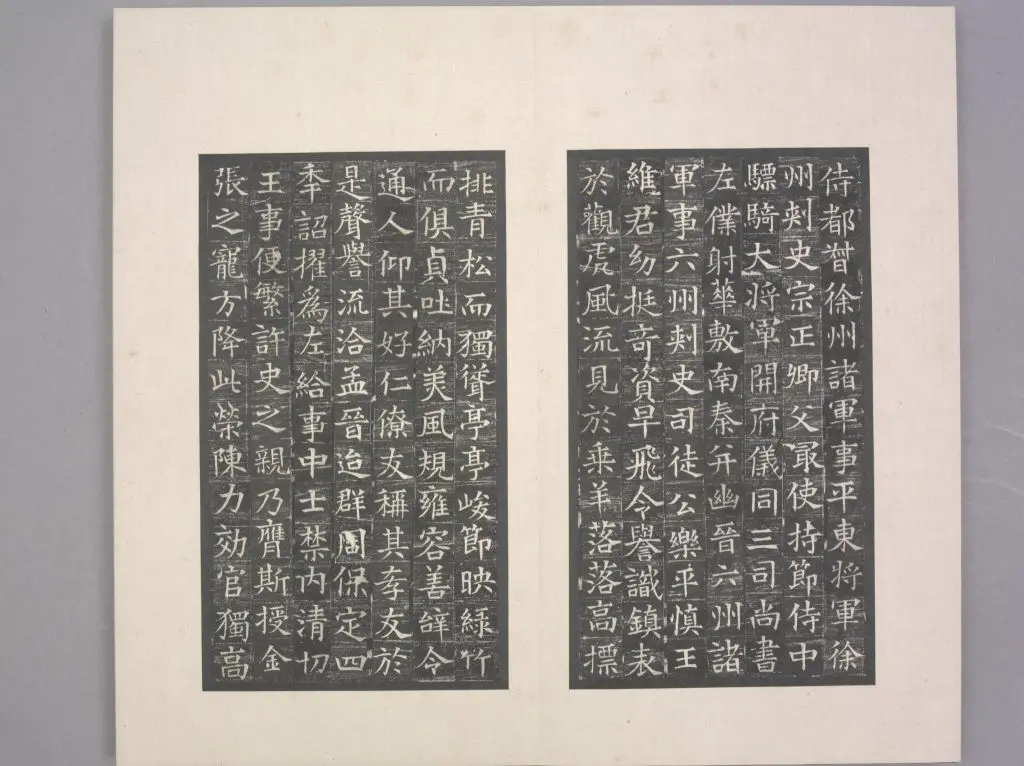 侍都督徐州諸軍事平東將軍徐
州刺史宗正卿父最使持節侍中
驃騎大將軍開府儀同三司尚書
左僕射華敷南秦并幽晉六州諸
軍事六州刺史司徒公樂平慎王
維君幼挺奇資早飛令譽識鎮表
於觀虎風流見於乘羊落落高摽
排青松而獨聳亭亭峻節映綠竹
而俱貞吐納美風規雍容善辭令
通人仰其好仁僚友稱其孝友於
是聲譽流洽孟晉迨群周保定四
季詔擢為左給事中士禁內清切
王事便繁許史之親乃膺斯授金
張之寵方降此榮陳力効官獨高